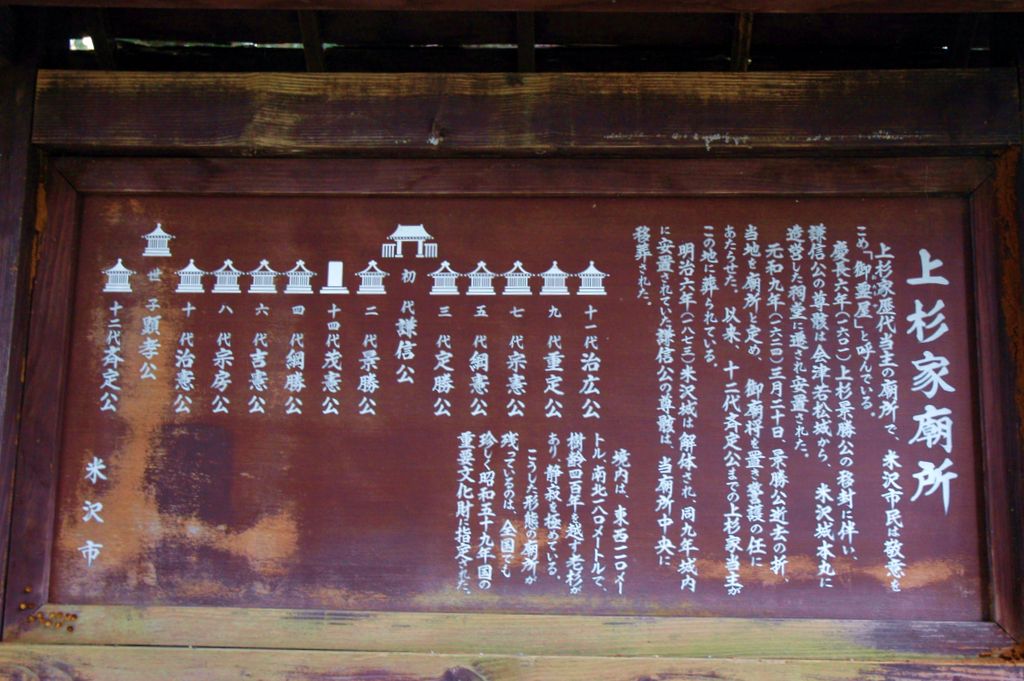 上杉家廟所
上杉家歴代当主の廟所で、米沢市民は敬意を
こめ「御霊屋」と呼んでいる。
慶長六年(一六〇一)上杉景勝公の移封に伴い、
謙信公の尊骸は会津若松城から、米沢城本丸に
造営した祠堂に遷され安置された。
元和九年(一六二四)三月二十日、景勝公逝去の折、
当地を廟所と定め、御廟将を置き警護の任に
あたらせた。以来、十二代斉定公までの上杉家当主が
この地に葬られている。
明治六年(一八七三)米沢城は解体され、同九年城内
に安置されていた謙信公の尊骸は、当廟所中央に
移葬された。
境内は、東西一二〇メー
トル、南北一八〇メートルで、
樹齢四百年を越す老杉が
あり静寂を極めている。
こうした形態の廟所が
残っているのは、全国でも
珍しく昭和五十九年国の
重要文化財に指定された。
十一代治広公
九代重定公
七代宗憲公
五代綱憲公
三代定勝公
初代謙信公
二代景勝公
十四代茂憲公
四代綱勝公
六代吉憲公
八代宗房公
十代治憲公
世子顕孝公
十二代斉定公
米沢市